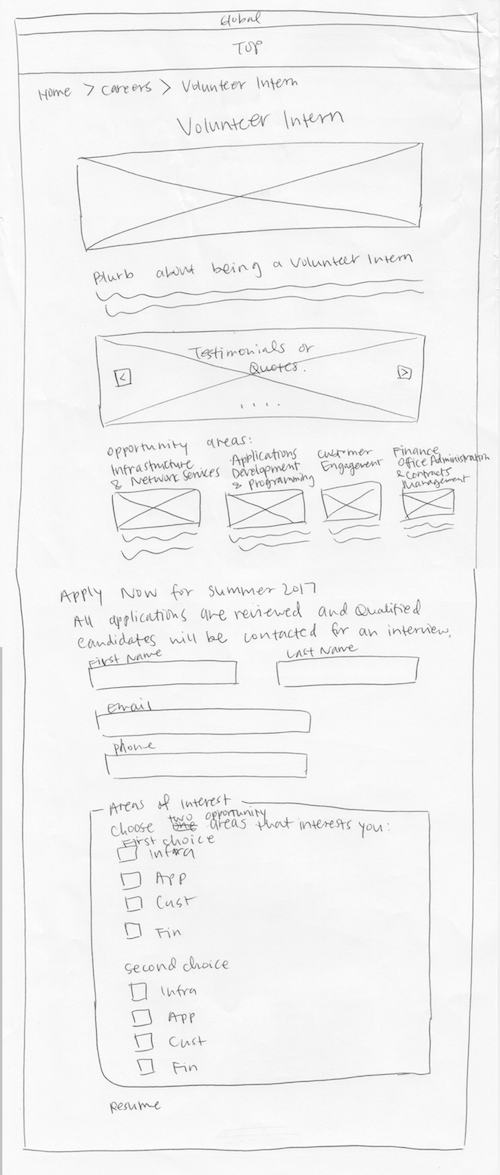 Global
TOP
Home > Careers > Volunteer Intern
Volunteer Intern
Blurb about being a Volunteer Intern
Testimonials or
Quotes.
. . . .
< >
Opportunity areas:
Infrastructure
& Network Services
Applications
Development
& Programming
Customer
Engagement
Finance
Office Administration
& Contracts
Management
Apply Now for Summer 2017
All applications are reviewed and Qualified
candidates will be contacted for an interview.
First Name
Last Name
Email
Phone
Areas of Interest
Choose two opportunity areas that interests you:
First choice
Infra
App
Cust
Fin
second choice
Infra
App
Cust
Fin
Resume